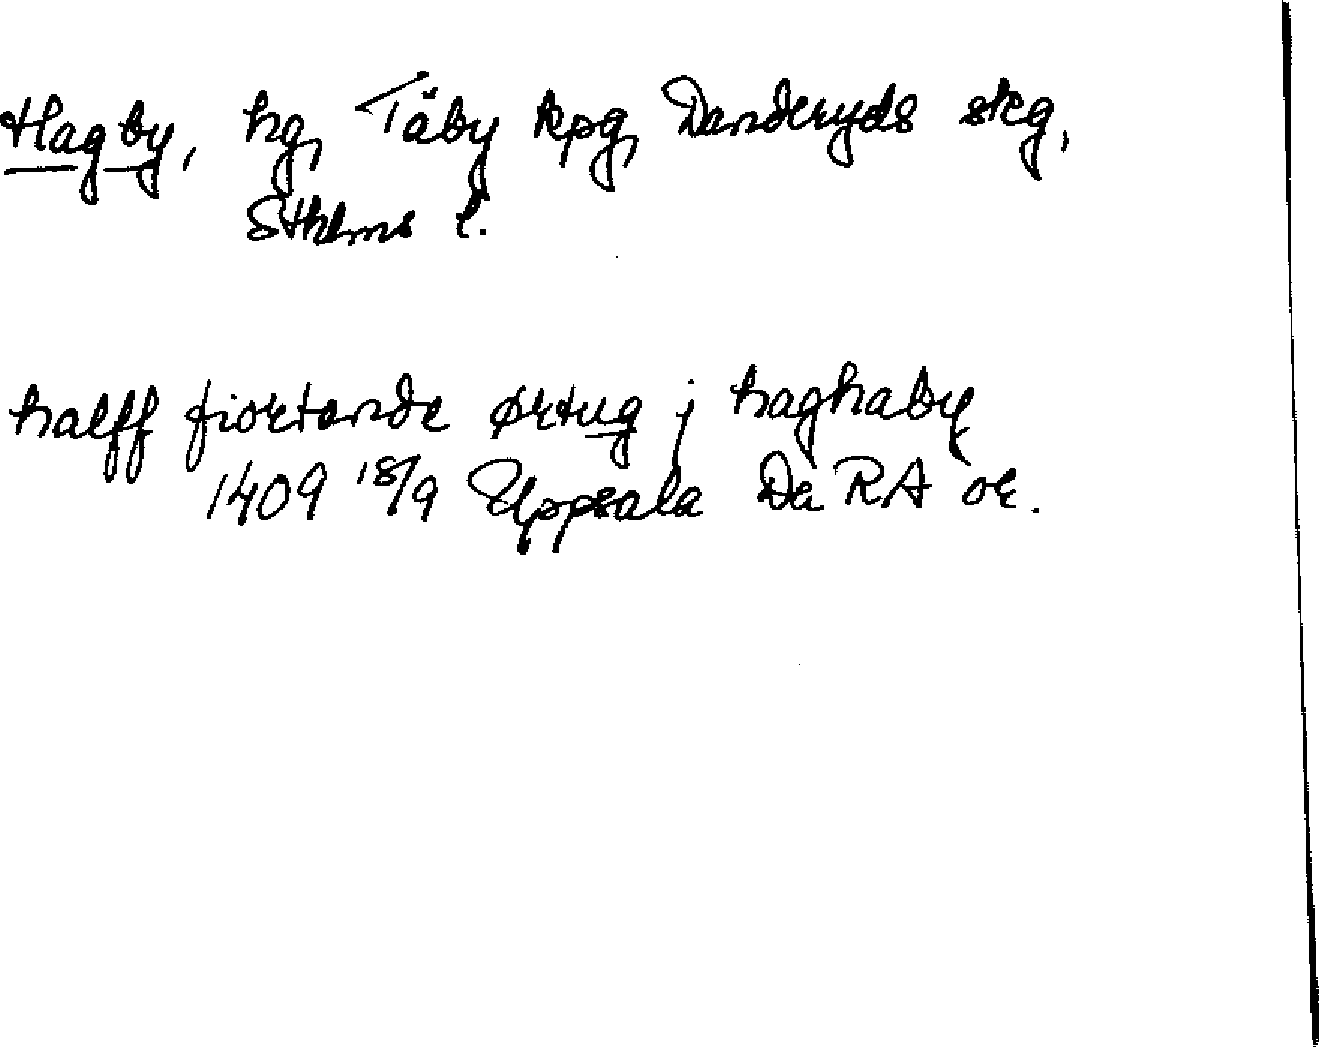 Hagby, hg, Täby kpg, Danderyds skg,
Sthlms l.
halff fiortande ørtug j haghaby
1409 18/9 Uppsala Da RA or.